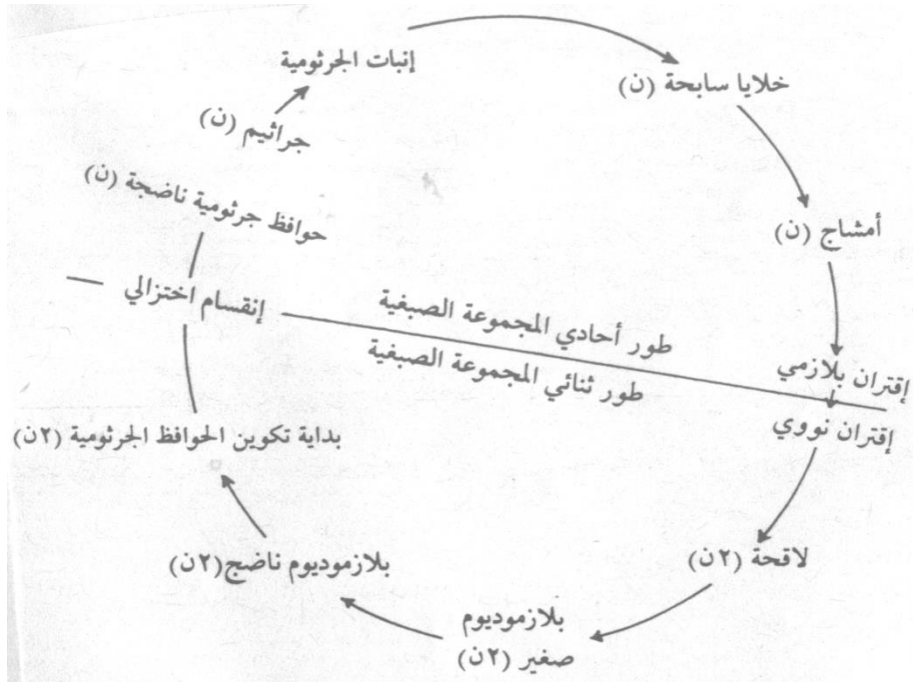 إنبات الجرثومية
خلايا سابحة (ن)
جراثيم (ن)
حوافظ جرثومية ناضجة (ن)
أمشاج (ن)
إنقسام اختزالي
طور أحادي المجموعة الصبغية
طور ثنائي المجموعة الصبغية
إقتران بلازمي
إقتران نووي
بداية تكوين الحوافظ الجرثومية (٢ن)
لاقحة (٢ن)
بلازموديوم ناضج(٢ن)
بلازموديوم
صغير (٢ن)